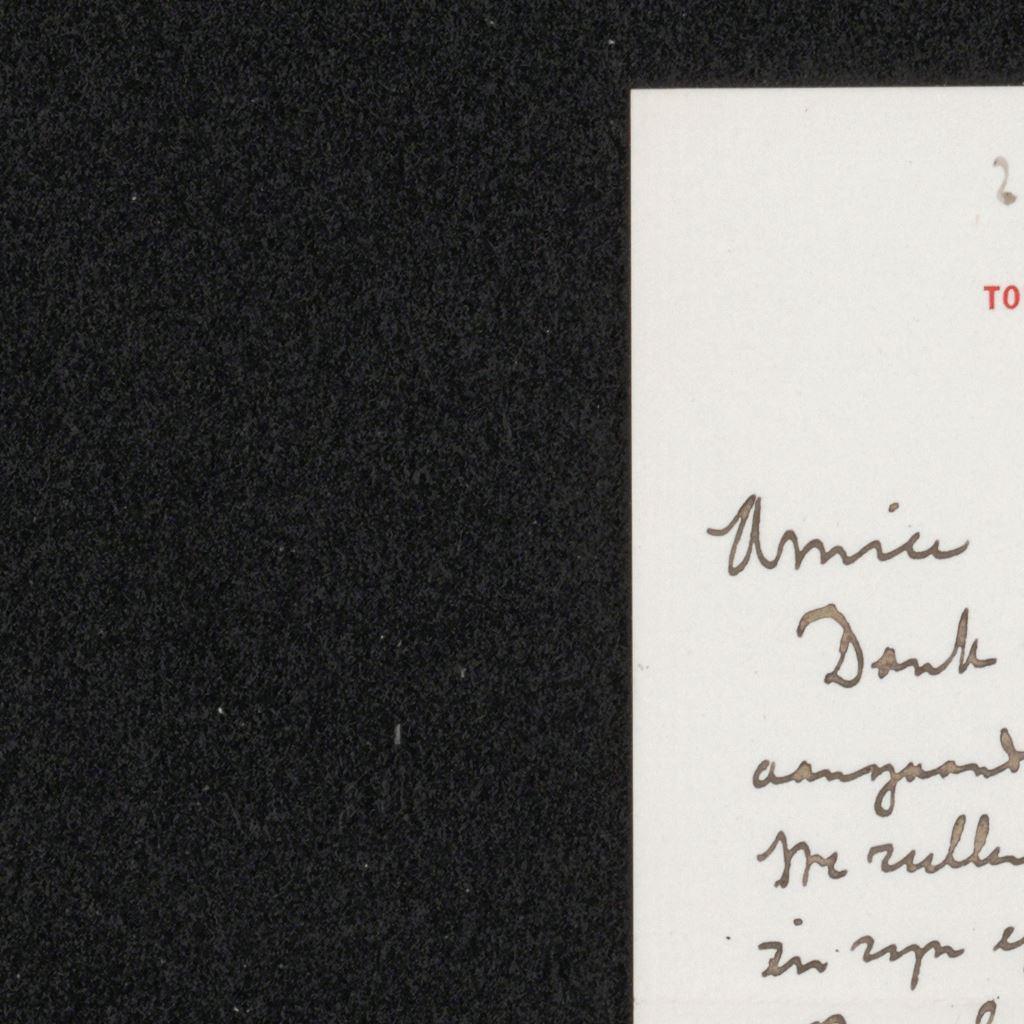 2
TO
Amice
Dank
aangaand
We zullen
in zijn